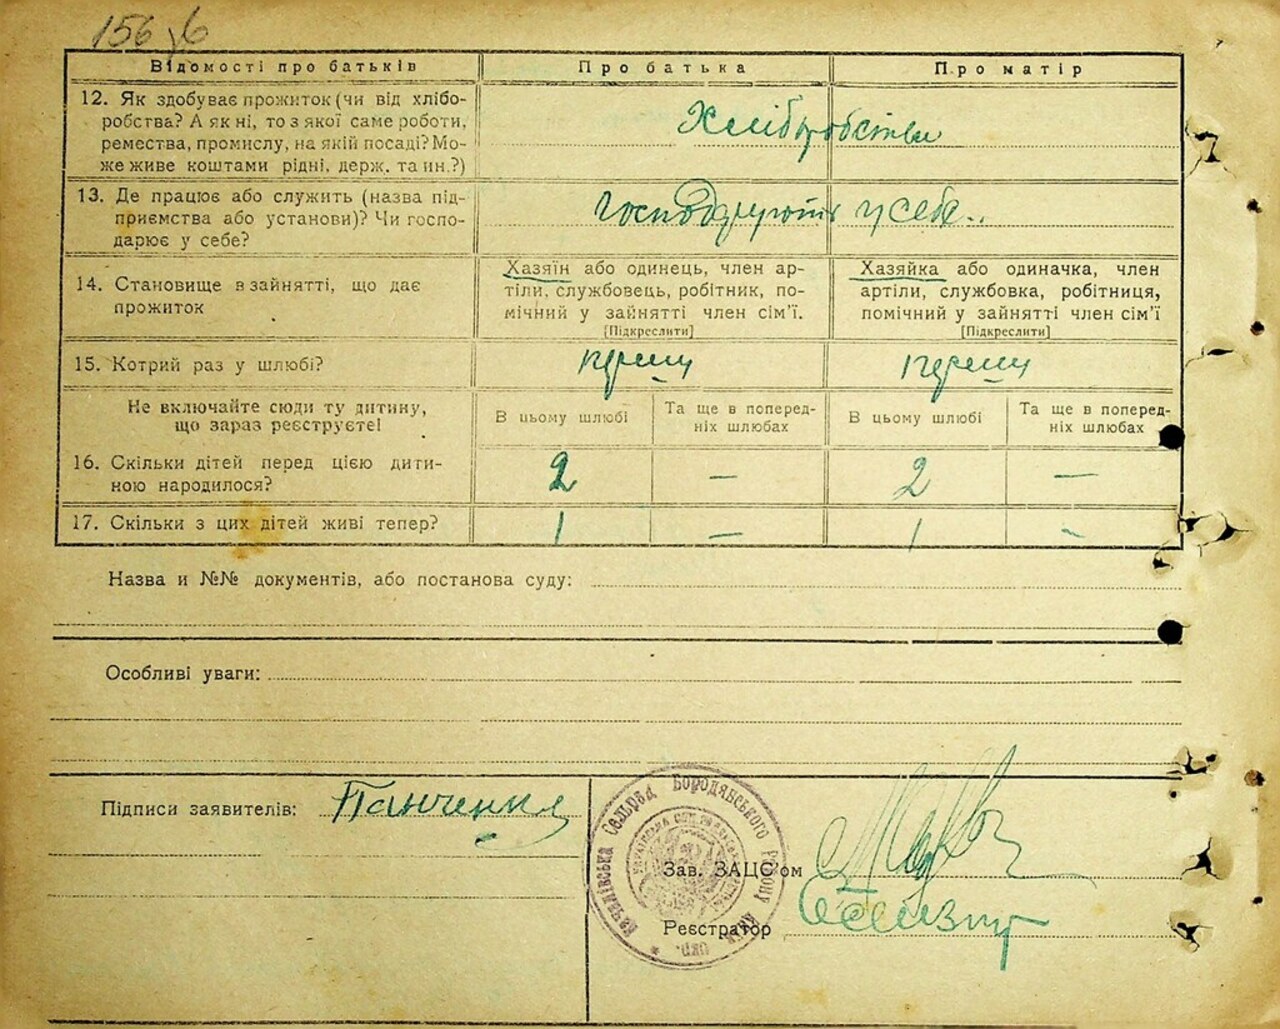 156 зб
Відомості про батьків
Про батька
Про матір
12. Як здобуває прожиток (чи від хлібо-
робства? А як ні, то з якої саме роботи,
ремества, промислу, на якій посаді? Мо-
же живе коштами рідні, держ. та ин.?)
Хліборобства
13. Де працює або служить (назва під-
приємства або установи)? Чи госпо-
дарює у себе?
Господарюють у себе
14. Становище в зайнятті, що дає
прожиток
Хазяїн або одинець, член ар-
тілі, службовець, робітник, по-
мічний у зайнятті член сім'ї.
[Підкреслити]
Хазяйка або одиначка, член
артілі, службовка, робітниця,
помічний у зайнятті член сім'ї
[Підкреслити]
15. Котрий раз у шлюбі?
перший
перший
Не включайте сюди ту дитину,
що зараз реєструєте!
В цьому шлюбі
Та ще в поперед-
ніх шлюбах
В цьому шлюбі
Та ще в поперед-
ніх шлюбах
16. Скільки дітей перед цією дити-
ною народилося?
2
—
2
—
17. Скільки з цих дітей живі тепер?
1
—
1
-
Назва и №№ документів, або постанова суду:
Особливі уваги:
Підписи заявителів: Панченко
Сельрад Бородянського Району
Зав. ЗАЦС'ом
Реєстратор